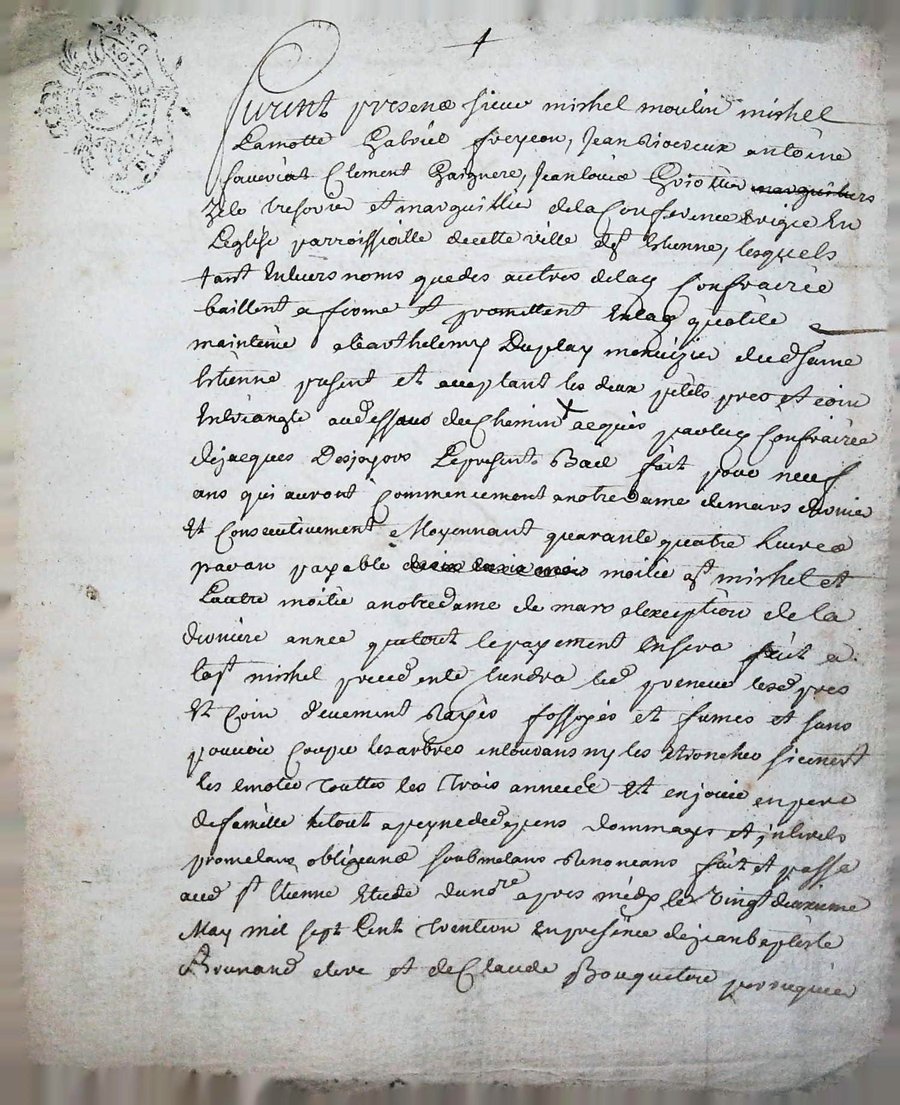 furent presens sieur mishel moulin mishel
Lamotte Gabriel freycon, Jean antoine
Clement Gaignere, Jean Louis Griottier marguiliers
tresorie et marguillie dela Conference Erigée En
Leglise parroissialle decette ville de st Etienne, lesquels
tant Enleurs noms quedes autres delad Confrairie
baillent a ferme et promettent Enlad qualité
maintenir abarthelemy Duplay menuizier dud
Etienne present et acceptant les deux petits prés et coin
Entriangle audessous duchemin acquis parlad Confrairie
dejacques Desjoyos Lepresent Bail fait pour neuf
ans qui auront Commencement anotredame demars dernier
Et Consecutivement Moyennant quarante quatre Livres
par an payable moitié a st mishel et
Lautre moitié anotredame de mars alexception de la
derniere année quetout lepayement Ensera fait a
last mishel precedente tiendra led preneur lesd prés
Et Coin duement fossoyés et fumés et sans
pouvoir Couper lesarbres nyles Etroncher sicenest
les emoter touttes les trois années Et enjouir enpere
defamille letout apeyne detous depens dommages et interets
promettans obligeans soubmetans Renoncans fait et passé
aud st Etienne Etude dunore apres midy le vingt deuxieme
May mil sept Cent trente en presence dejean baptiste
Brunand clerc et de Claude perruquier